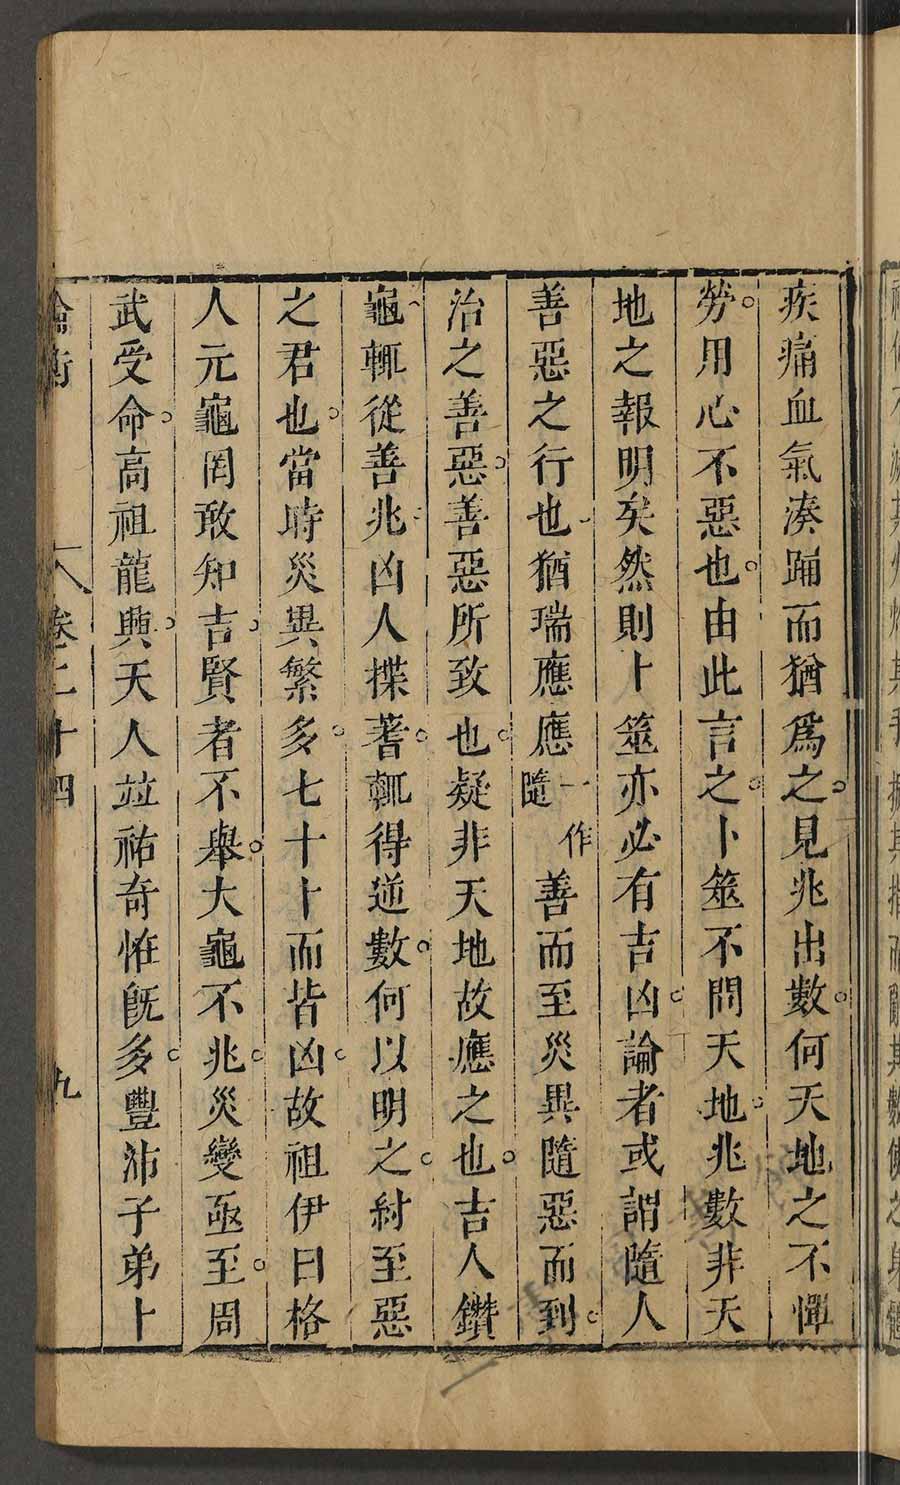 疾痛血氣湊踊而猶爲之見兆出數何天地之不憚
勞用心不惡也由此言之卜筮不問天地兆數非天
地之報明矣然則卜筮亦必有吉凶論者或謂隨人
善惡之行也猶瑞應應一作隨善而至災異隨惡而到
治之善惡善惡所致也疑非天地故應之也吉人鑽
龜輒從善兆凶人揲蓍輒得逆數何以明之紂至惡
之君也當時災異繁多七十卜而皆凶故祖伊曰格
人元龜罔敢知吉賢者不舉大龜不兆災變亟至周
武受命高祖龍興天人竝祐奇恠旣多豐沛子弟卜
論衡 卷二十四 九